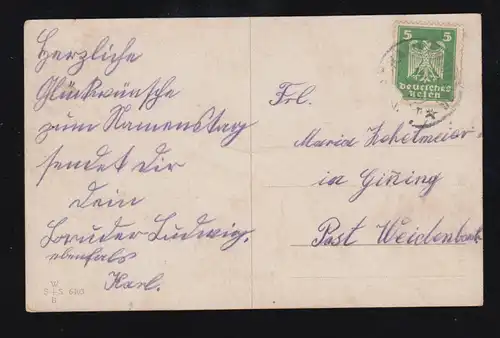 Herzliche
Glückwünsche
zum Namenstag
sendet Dir
Dein
Bruder Ludwig.
ebenfals
Karl.
W
S+S 680
B
5 5
Deutsches
Reich
Frl.
Maria
in Gißing
Post Weidenbach